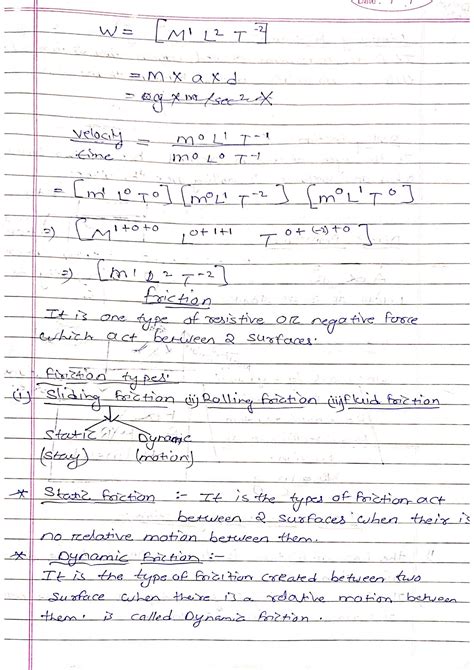 Date: / /
W = [M¹ L² T⁻²]
= M x a x d
= kg x m/sec² x
velocity/time = M⁰ L¹ T⁻¹/M⁰ L⁰ T⁻¹
= [M¹ L⁰ T⁰] [M⁰ L¹ T⁻²] [M⁰ L¹ T⁰]
⇒ [M¹⁺⁰⁺⁰ L⁰⁺¹⁺¹ T⁰⁺⁽⁻²⁾⁺⁰]
⇒ [M¹ L² T⁻²]
friction
It is one type of resistive OR negative force
which act between 2 surfaces.
friction types:
(i) Sliding friction (ii) Rolling friction (iii) fluid friction
Static Dynamic
(stay) (motion)
* Static friction :- It is the types of friction act
between 2 surfaces when their is
no relative motion between them.
* Dynamic friction :-
It is the type of friction created between two
surface when there is a relative motion between
them. is called Dynamic friction.